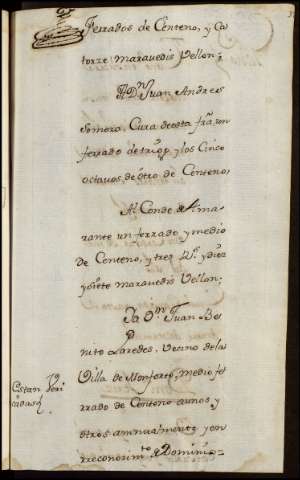 Ferrados de Centeno, y Ca
torze maravedis Vellon;
A Dn. Juan Andres
Somoza, Cura de esta fra. un
ferrado de trigo, y los Cinco
octavos de otro de Centeno;
Al Conde de Ama
rante un ferrado y medio
de Centeno, y tres Rs. y diez
y siete maravedis Vellon;
Ya Dn. Juan Be
nito Paredes, Vecino de la
Villa de Monforte, medio fe
rrado de Centeno a unos, y
otros annualmente y en
rreconocimto. de Dominio
Estan Veri